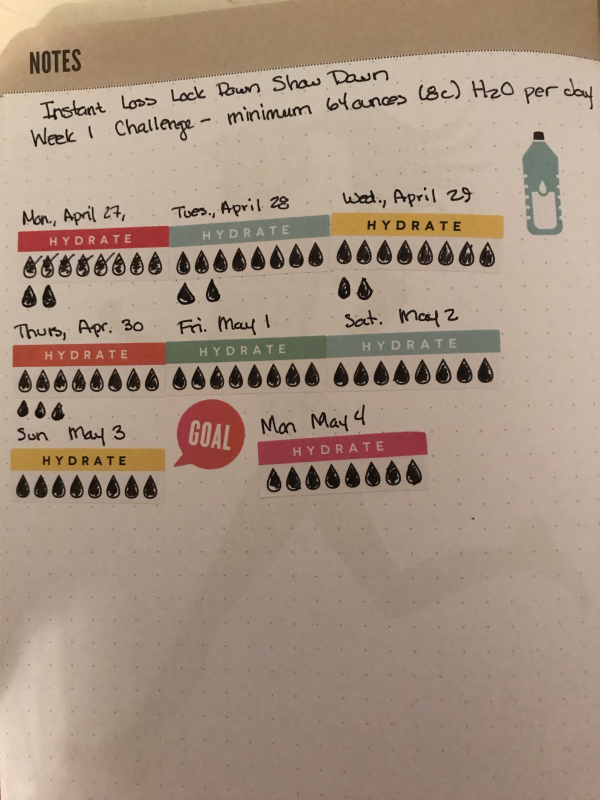 NOTES
Instant Loss Lock Down Show Down
Week 1 Challenge - minimum 64 ounces (8c) H2O per day
Mon., April 27, Tues., April 28 Wed., April 29
HYDRATE HYDRATE HYDRATE
Thurs, Apr. 30 Fri. May 1 Sat. May 2
HYDRATE HYDRATE HYDRATE
Sun May 3 GOAL Mon May 4
HYDRATE HYDRATE